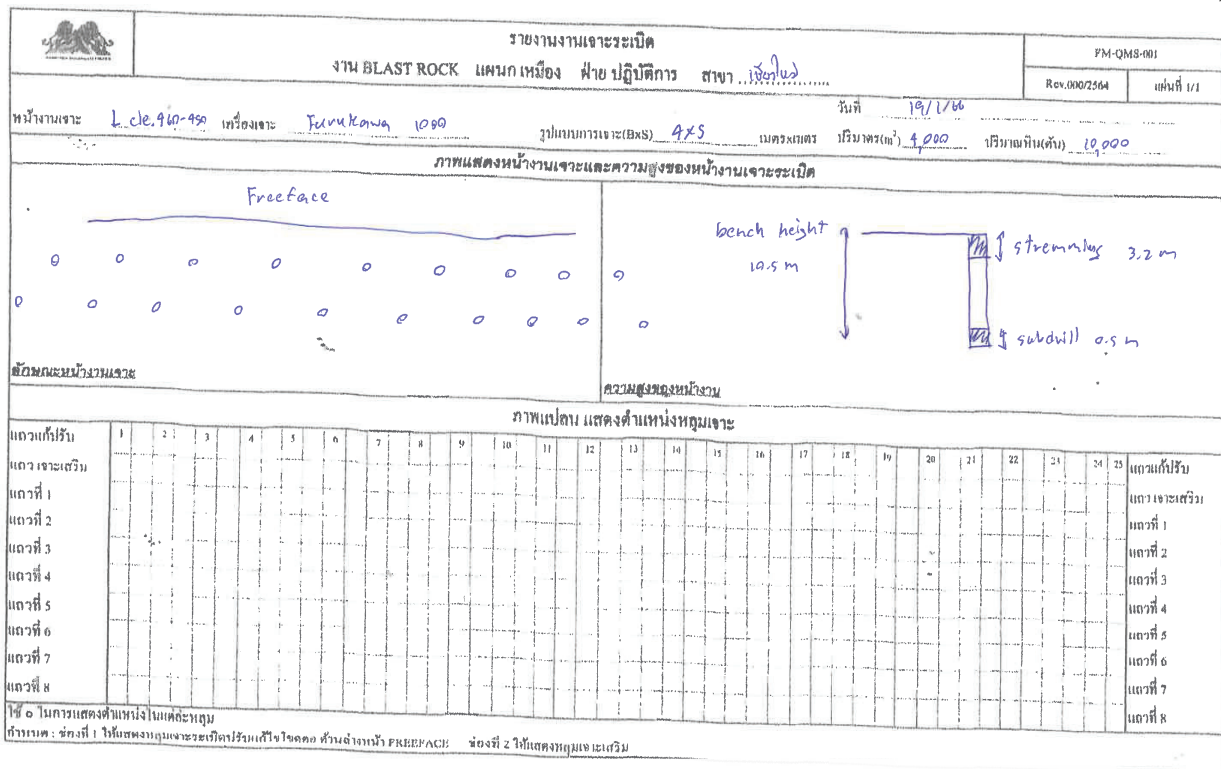 รายงานงานเจาะระเบิด
งาน BLAST ROCK แผนกเหมือง ฝ่าย ปฏิบัติการ สาขา เชียงใหม่
FM-QMS-001
Rev.000/2564 แผ่นที่ 1/1
วันที่ 19/1/66
หน้างานเจาะ เครื่องเจาะ Furukawa รูปแบบการเจาะ(BxS) 4x5 เมตรxเมตร ปริมาตร(m³) 4,000 ปริมาณหิน(ตัน) 10,000
ภาพแสดงหน้างานเจาะและความสูงของหน้างานเจาะระเบิด
Freeface
bench height
10.5 m
stremming 3.2 m
subdrill 0.5 m
ลักษณะหน้างานเจาะ
ความสูงของหน้างาน
ภาพแปลน แสดงตำแหน่งหลุมเจาะ
แถวแก้ปรับ 1 2 3 4 5 6 7 8 9 10 11 12 13 14 15 16 17 18 19 20 21 22 23 24 25 แถวแก้ปรับ
แถวเจาะเสริม แถวเจาะเสริม
แถวที่ 1 แถวที่ 1
แถวที่ 2 แถวที่ 2
แถวที่ 3 แถวที่ 3
แถวที่ 4 แถวที่ 4
แถวที่ 5 แถวที่ 5
แถวที่ 6 แถวที่ 6
แถวที่ 7 แถวที่ 7
แถวที่ 8 แถวที่ 8
ใช้ o ในการแสดงตำแหน่งในแต่ละหลุม
กำหนด : ช่องที่ 1 ให้แสดงหลุมเจาะระเบิดปรับแก้ไข ด้านล่างหน้า FREEFACE ช่องที่ 2 ให้แสดงหลุมเจาะเสริม